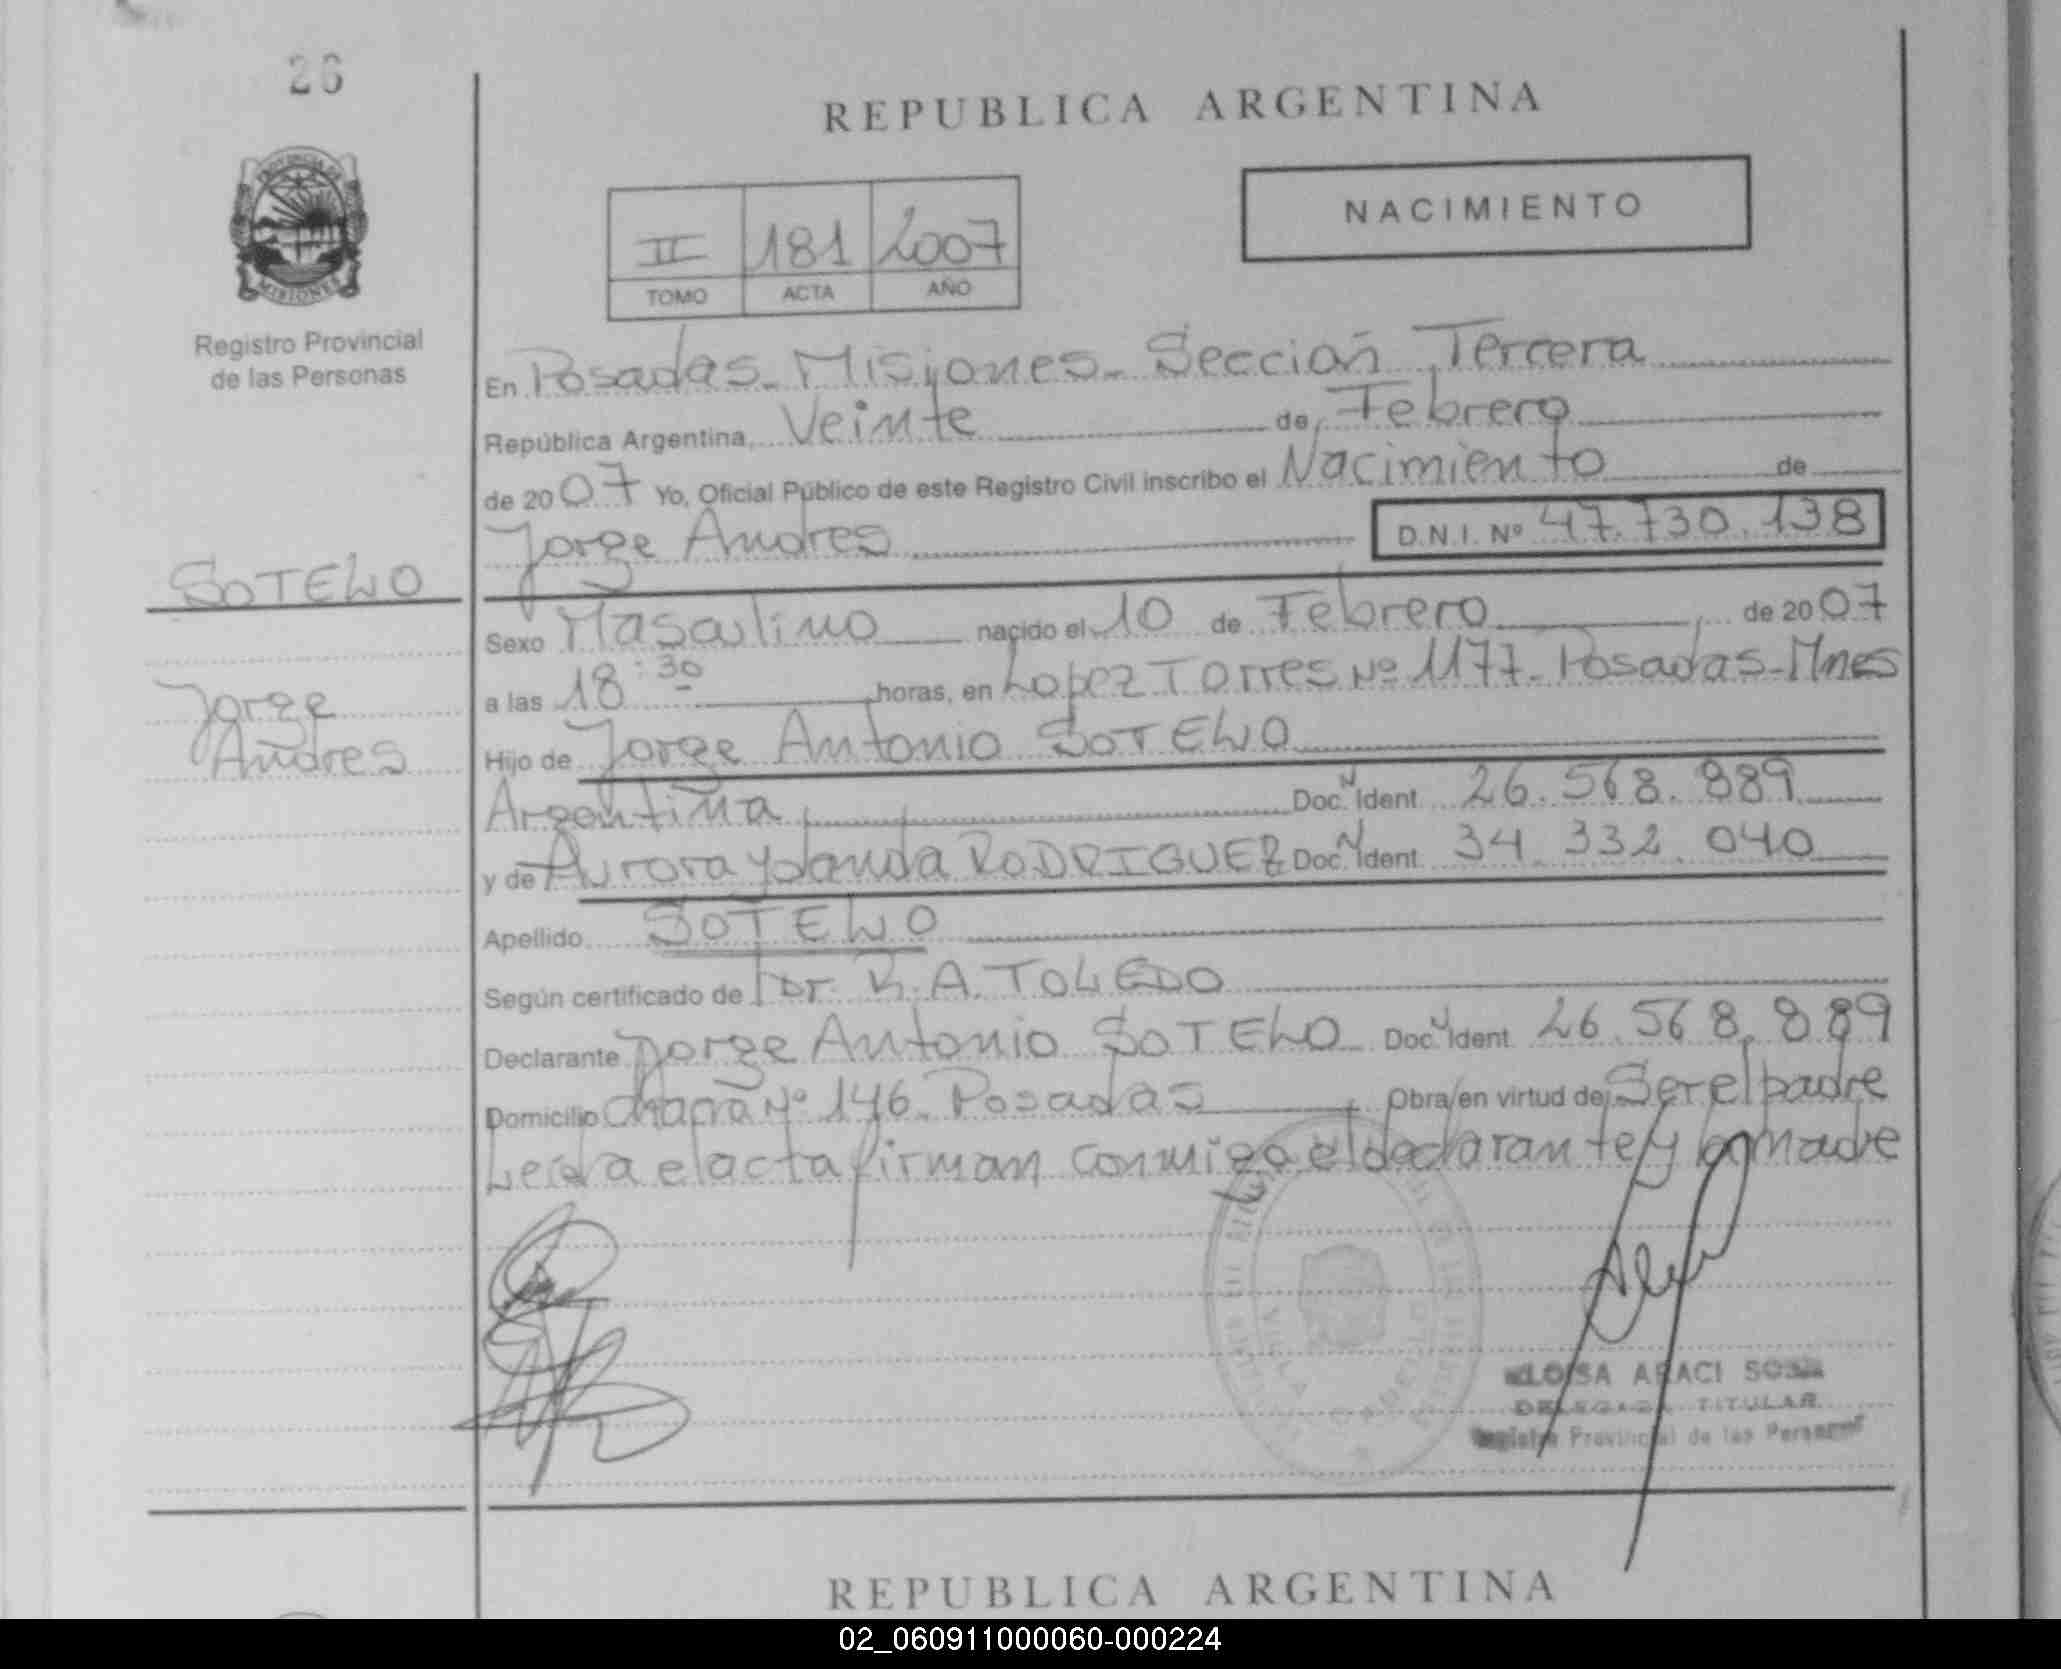 26
REPUBLICA ARGENTINA
PROVINCIA DE
MISIONES
Registro Provincial
de las Personas
NACIMIENTO
II 181 2007
TOMO ACTA AÑO
En Posadas - Misiones - Sección Tercera
República Argentina, Veinte de Febrero
de 2007 Yo, Oficial Público de este Registro Civil inscribo el Nacimiento de
Jorge Andres D.N.I. Nº 47.730.138
SOTELO
Sexo Masculino nacido el 10 de Febrero de 2007
Jorge
Andres
a las 18:30 horas, en Lopez Torres Nº 1177 - Posadas - Mnes
Hijo de Jorge Antonio SOTELO
Argentina Doc. Ident. 26.568.889
y de Aurora Yolanda RODRIGUEZ Doc. Ident. 34.332.040
Apellido SOTELO
Según certificado de Dr. R. A. TOLEDO
Declarante Jorge Antonio SOTELO Doc. Ident. 26.568.889
Domicilio Chacra Nº 146. Posadas Obra en virtud de Ser el padre
Leida el acta firman conmigo el declarante y la madre
ARACI
DELEGADA TITULAR
Provincial de las Personas
REPUBLICA ARGENTINA
02_060911000060-000224